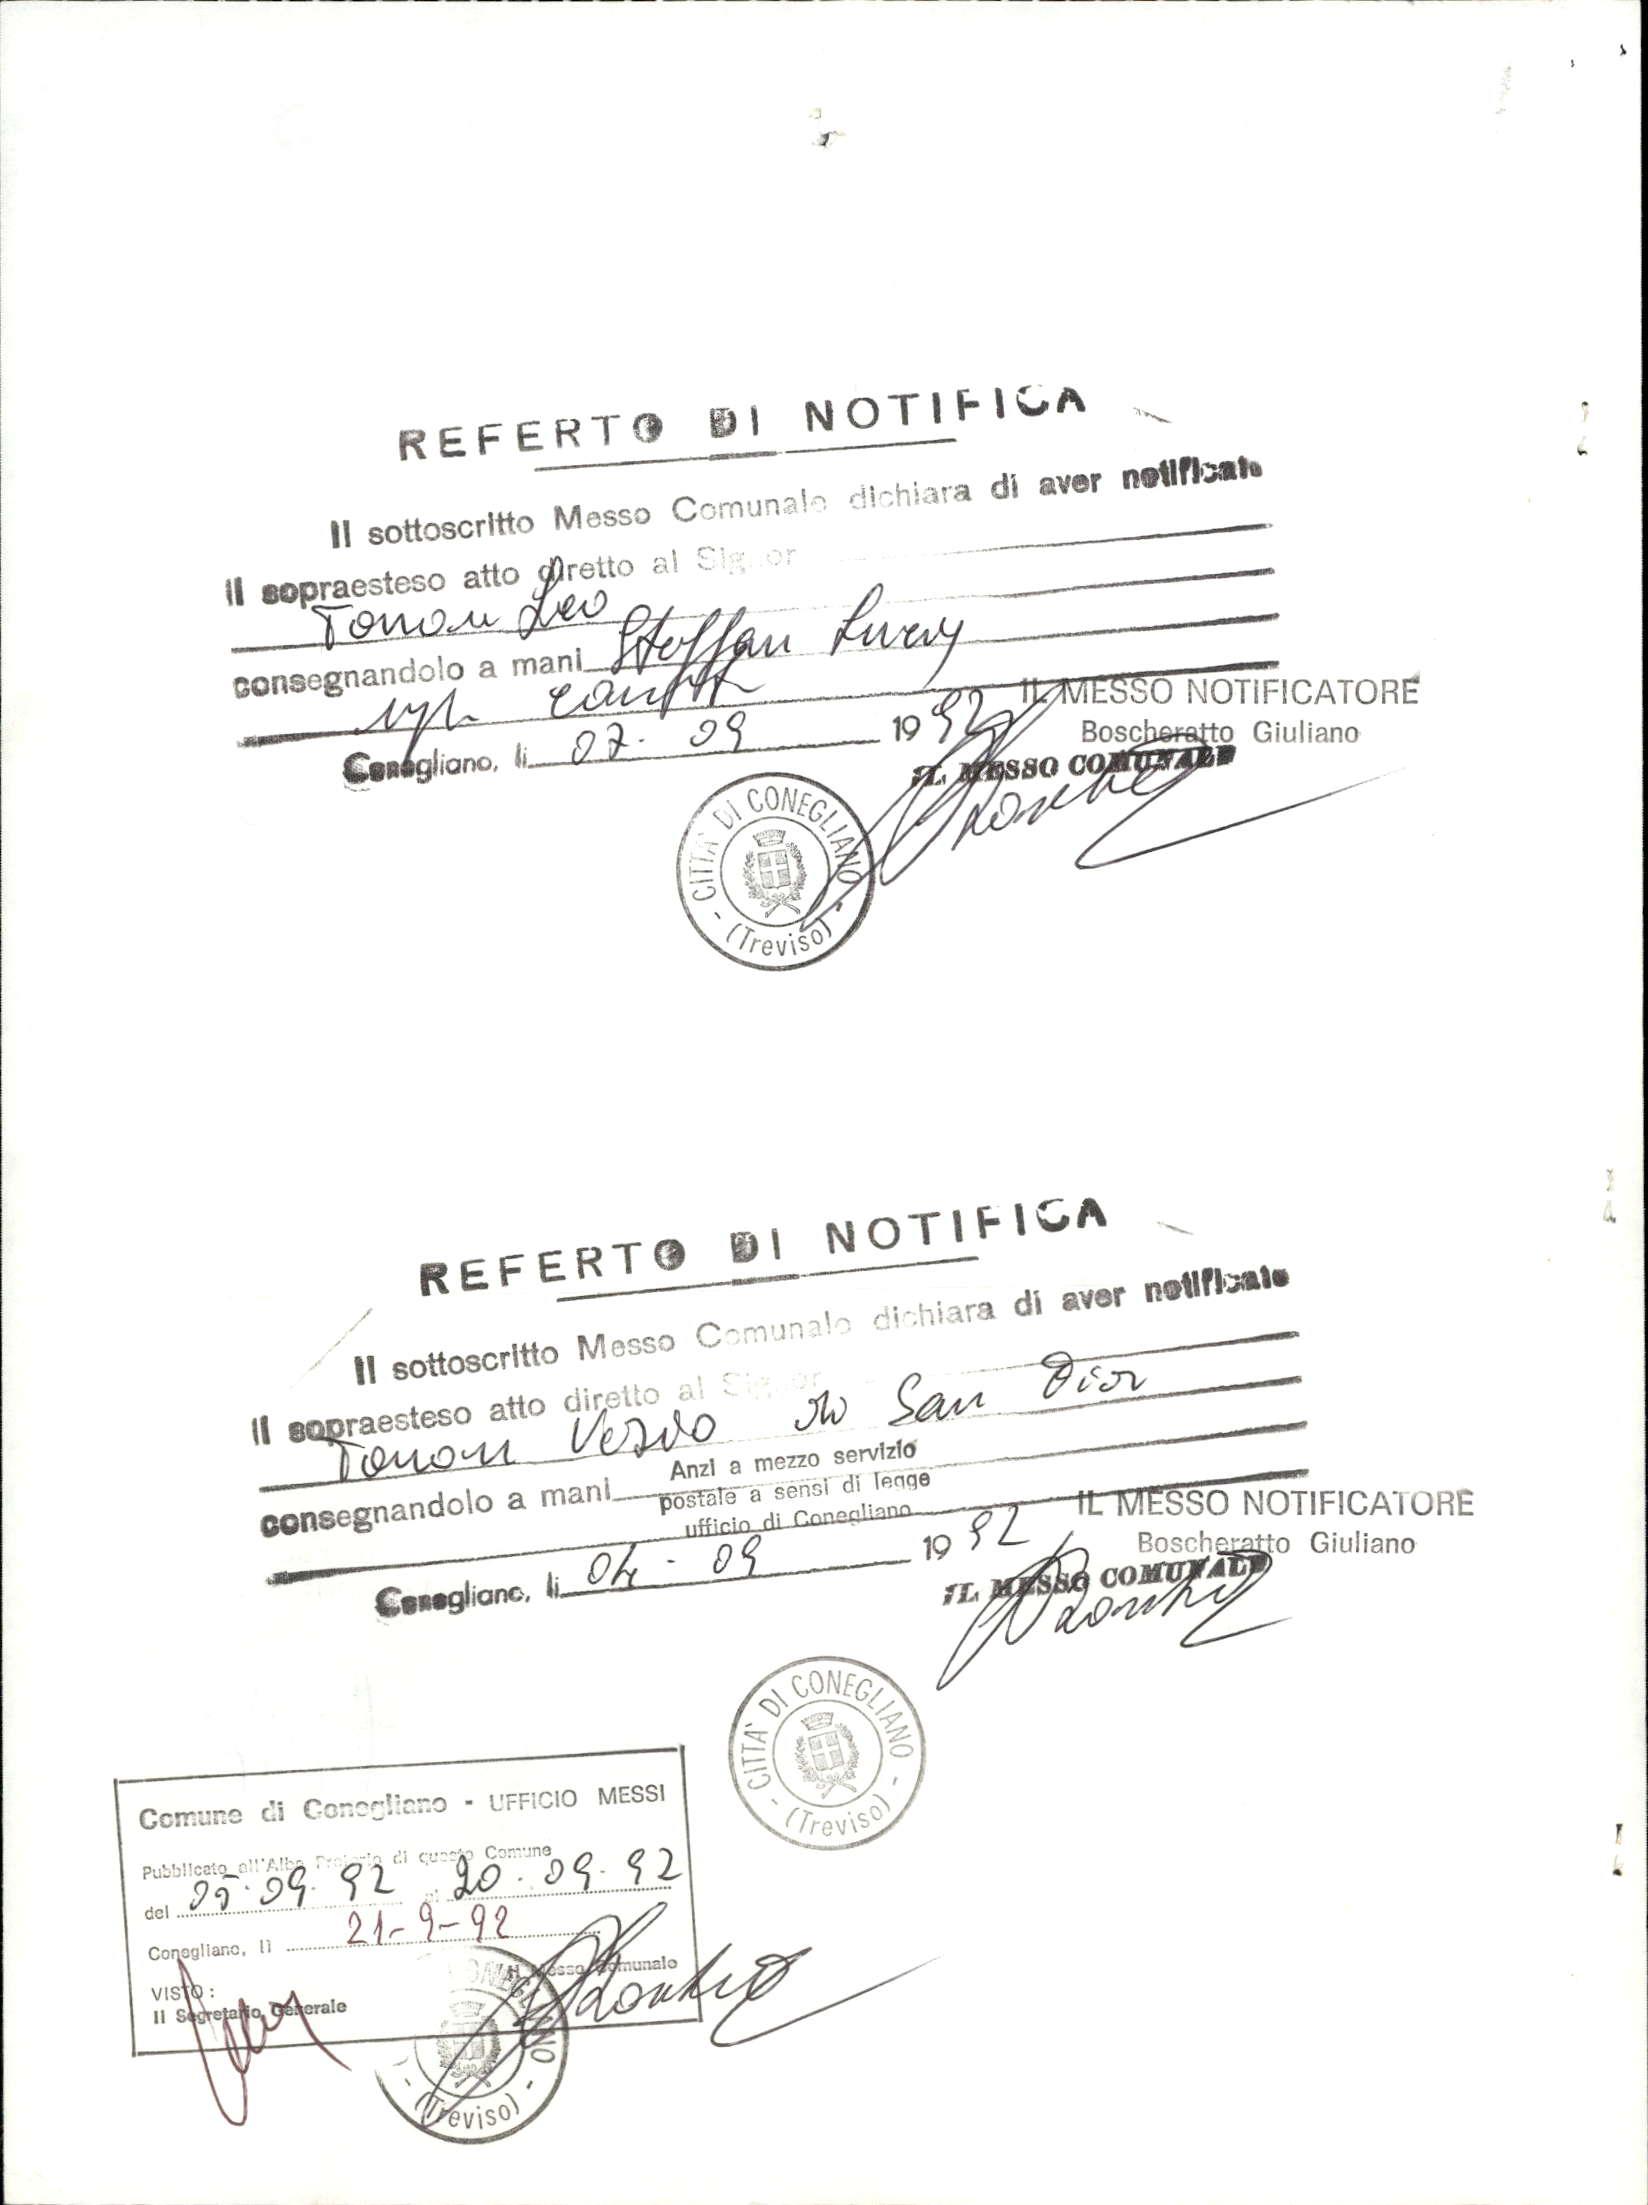 REFERTO DI NOTIFICA
Il sottoscritto Messo Comunale dichiara di aver notificato
il sopraesteso atto diretto al Signor
Tonon Leo
consegnandolo a mani Steffan
Conegliano, li 07. 09 1992
IL MESSO NOTIFICATORE
Boscheratto Giuliano
IL MESSO COMUNALE
CITTA' DI CONEGLIANO
- (Treviso) -
REFERTO DI NOTIFICA
Il sottoscritto Messo Comunale dichiara di aver notificato
il sopraesteso atto diretto al Signor
Tonon San
consegnandolo a mani Anzi a mezzo servizio
postale a sensi di legge
ufficio di Conegliano
Conegliano, li 04 - 09 1992
IL MESSO NOTIFICATORE
Boscheratto Giuliano
IL MESSO COMUNALE
CITTA' DI CONEGLIANO
- (Treviso) -
Comune di Conegliano - UFFICIO MESSI
Pubblicato all'Albo Pretorio di questo Comune
del 05.09.92 al 20.09.92
Conegliano, li 21-9-92
Il Messo Comunale
VISTO:
Il Segretario Generale
- (Treviso) -